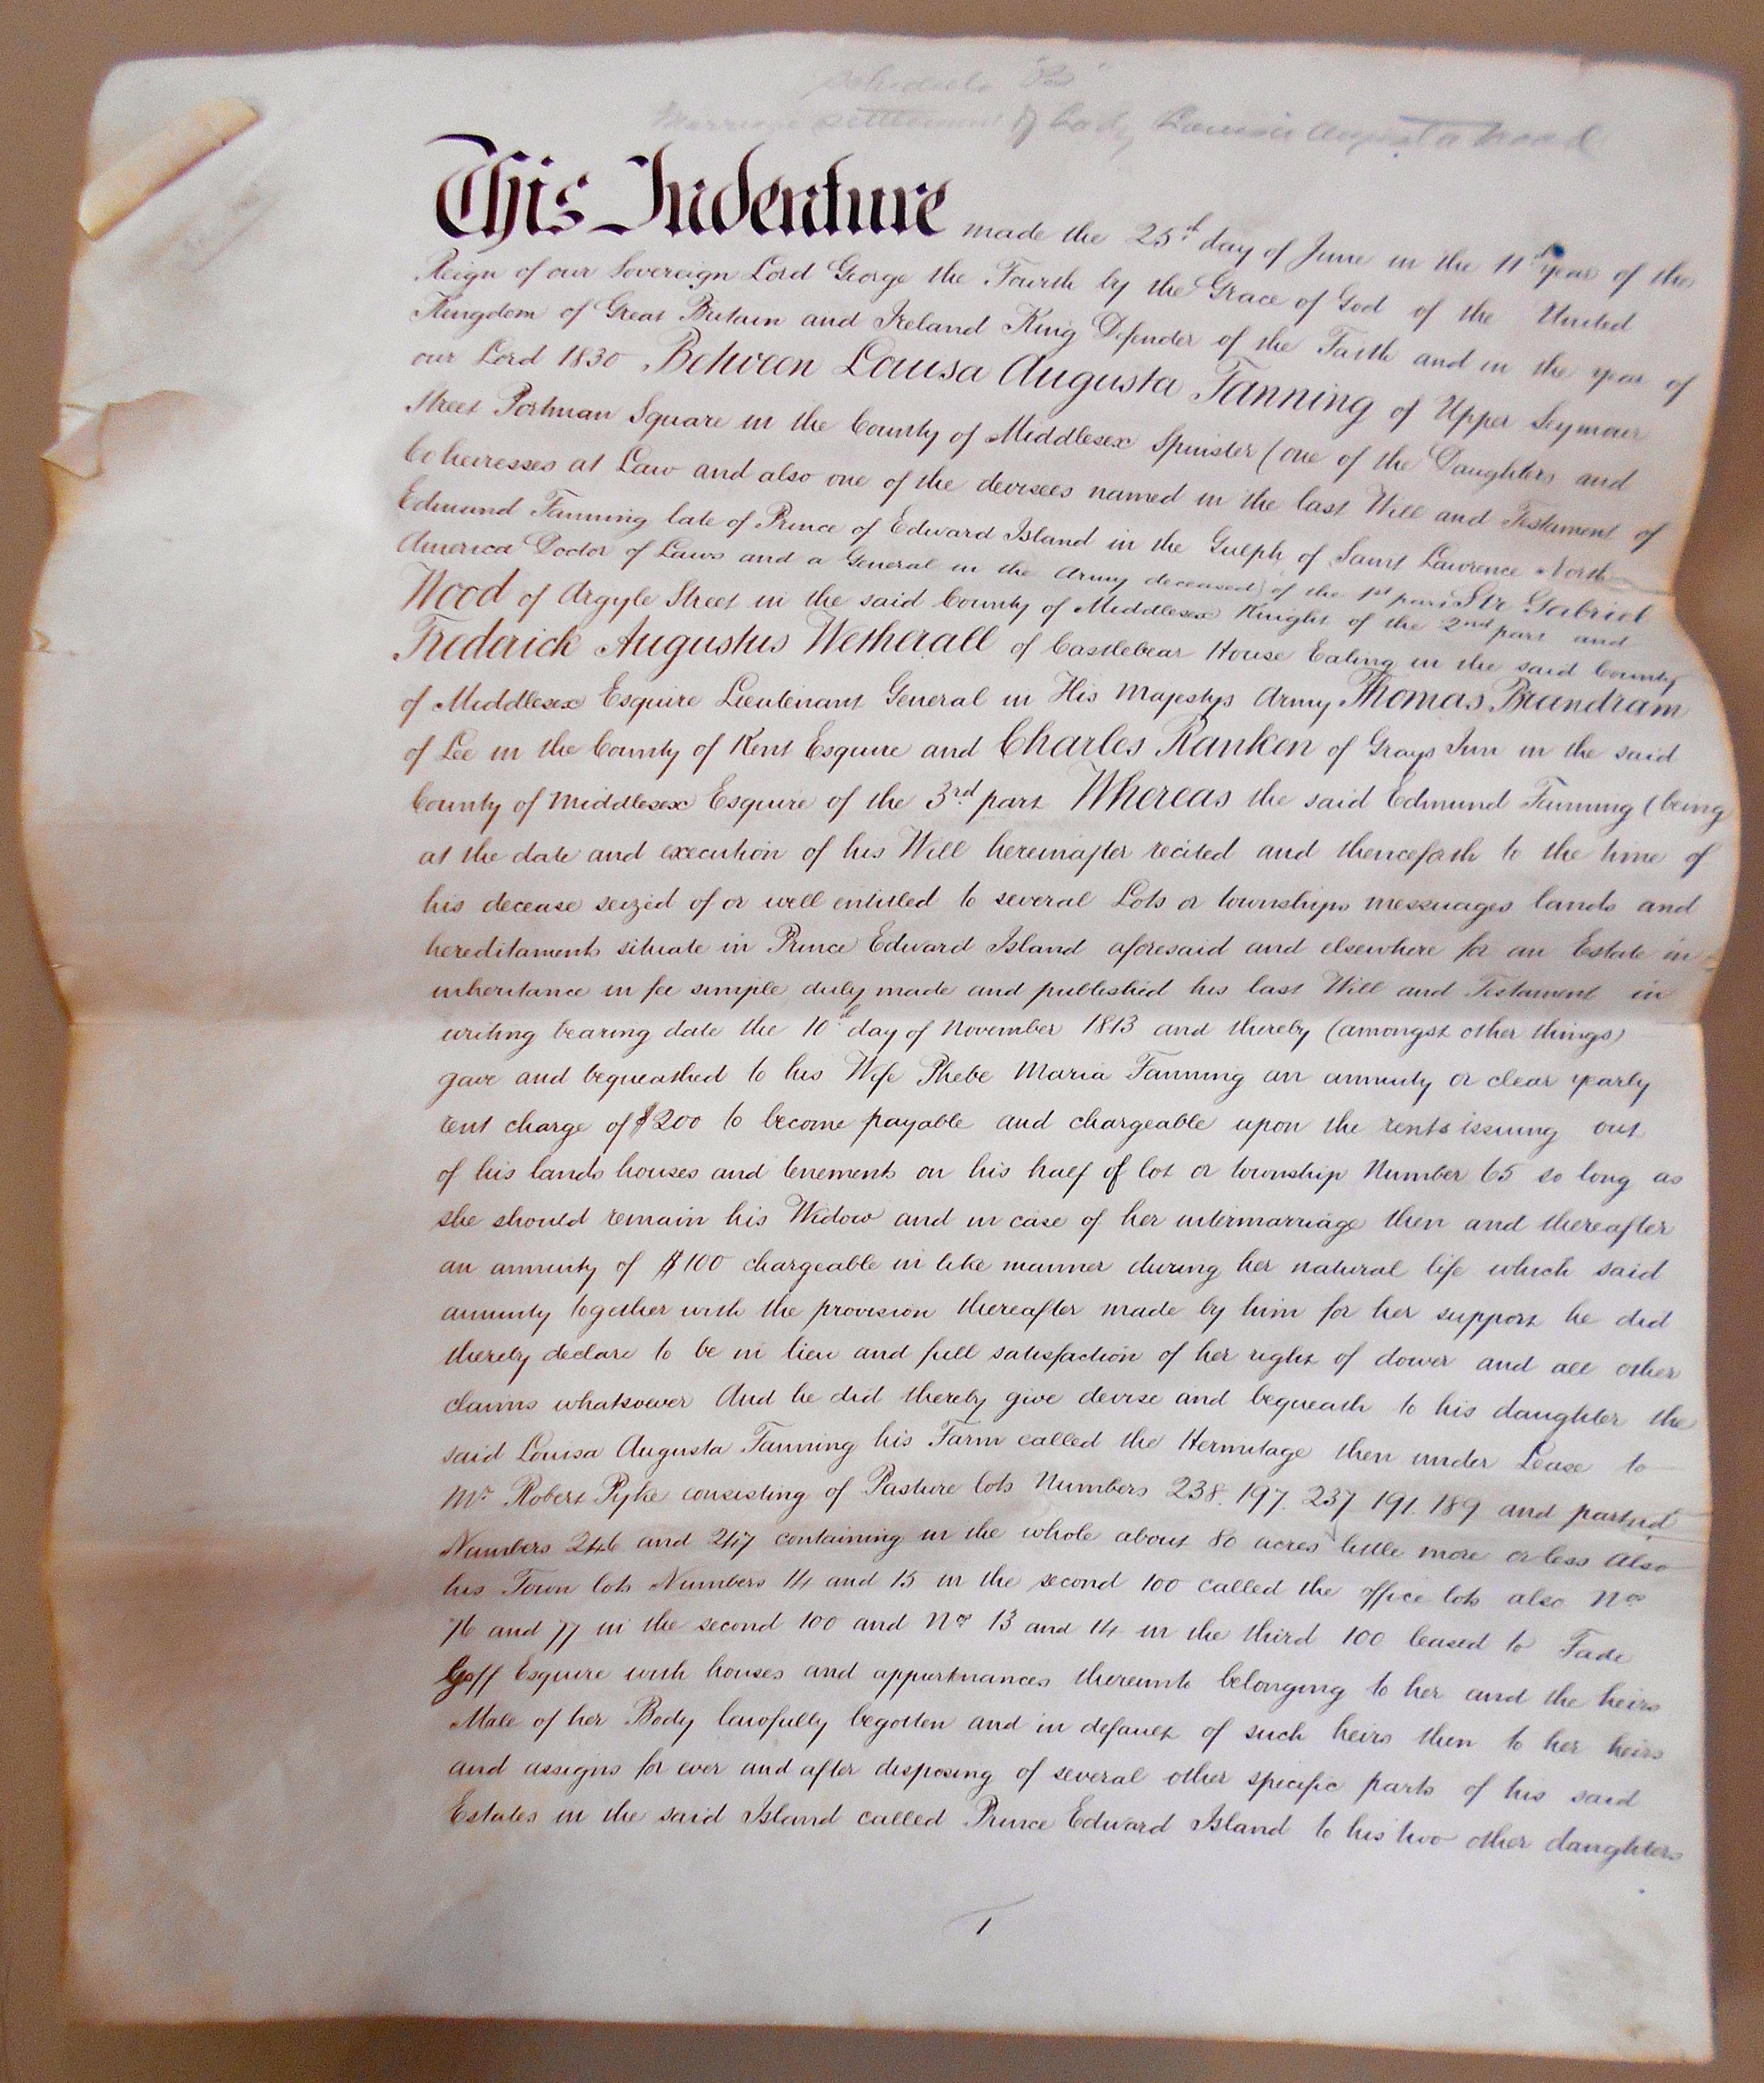 Schedule "B"
Marriage Settlement of Lady Louisa Augusta Wood
This Indenture made the 25th day of June in the 11th year of the
Reign of our Sovereign Lord George the Fourth by the Grace of God of the United
Kingdom of Great Britain and Ireland King Defender of the Faith and in the year of
our Lord 1830 Between Louisa Augusta Fanning of Upper Seymour
Street Portman Square in the County of Middlesex Spinster (one of the Daughters and
Coheiresses at Law and also one of the devisees named in the last Will and Testament of
Edmund Fanning late of Prince of Edward Island in the Gulph of Saint Lawrence North
America Doctor of Laws and a General in the Army deceased) of the 1st part Sir Gabriel
Wood of Argyle Street in the said County of Middlesex Knight of the 2nd part and
Frederick Augustus Wetherall of Castlebear House Ealing in the said County
of Middlesex Esquire Lieutenant General in His Majestys Army Thomas Brandram
of Lee in the County of Kent Esquire and Charles Ranken of Grays Inn in the said
County of Middlesex Esquire of the 3rd part Whereas the said Edmund Fanning (being
at the date and execution of his Will hereinafter recited and thenceforth to the time of
his decease seized of or well entitled to several Lots or townships messuages lands and
hereditaments situate in Prince Edward Island aforesaid and elsewhere for an Estate in
inheritance in fee simple duly made and published his last Will and Testament in
writing bearing date the 10th day of November 1813 and thereby (amongst other things)
gave and bequeathed to his Wife Phebe Maria Fanning an annuity or clear yearly
rent charge of £200 to become payable and chargeable upon the rents issuing out
of his lands houses and tenements on his half of lot or township Number 65 so long as
she should remain his Widow and in case of her intermarriage then and thereafter
an annuity of £100 chargeable in like manner during her natural life which said
annuity together with the provision thereafter made by him for her support he did
thereby declare to be in lieu and full satisfaction of her right of dower and all other
claims whatsoever And he did thereby give devise and bequeath to his daughter the
said Louisa Augusta Fanning his Farm called the Hermitage then under Lease to
Mr Robert Pyke consisting of Pasture lots Numbers 238. 197. 237 191. 189 and part of
Numbers 246 and 247 containing in the whole about 80 acres little more or less Also
his Town lots Numbers 14 and 15 in the second 100 called the office lots also Nos
76 and 77 in the second 100 and Nos 13 and 14 in the third 100 leased to Fade
Goff Esquire with houses and appurtnances thereunto belonging to her and the heirs
Male of her Body lawfully begotten and in default of such heirs then to her heirs
and assigns for ever and after disposing of several other specific parts of his said
Estates in the said Island called Prince Edward Island to his two other daughters
1